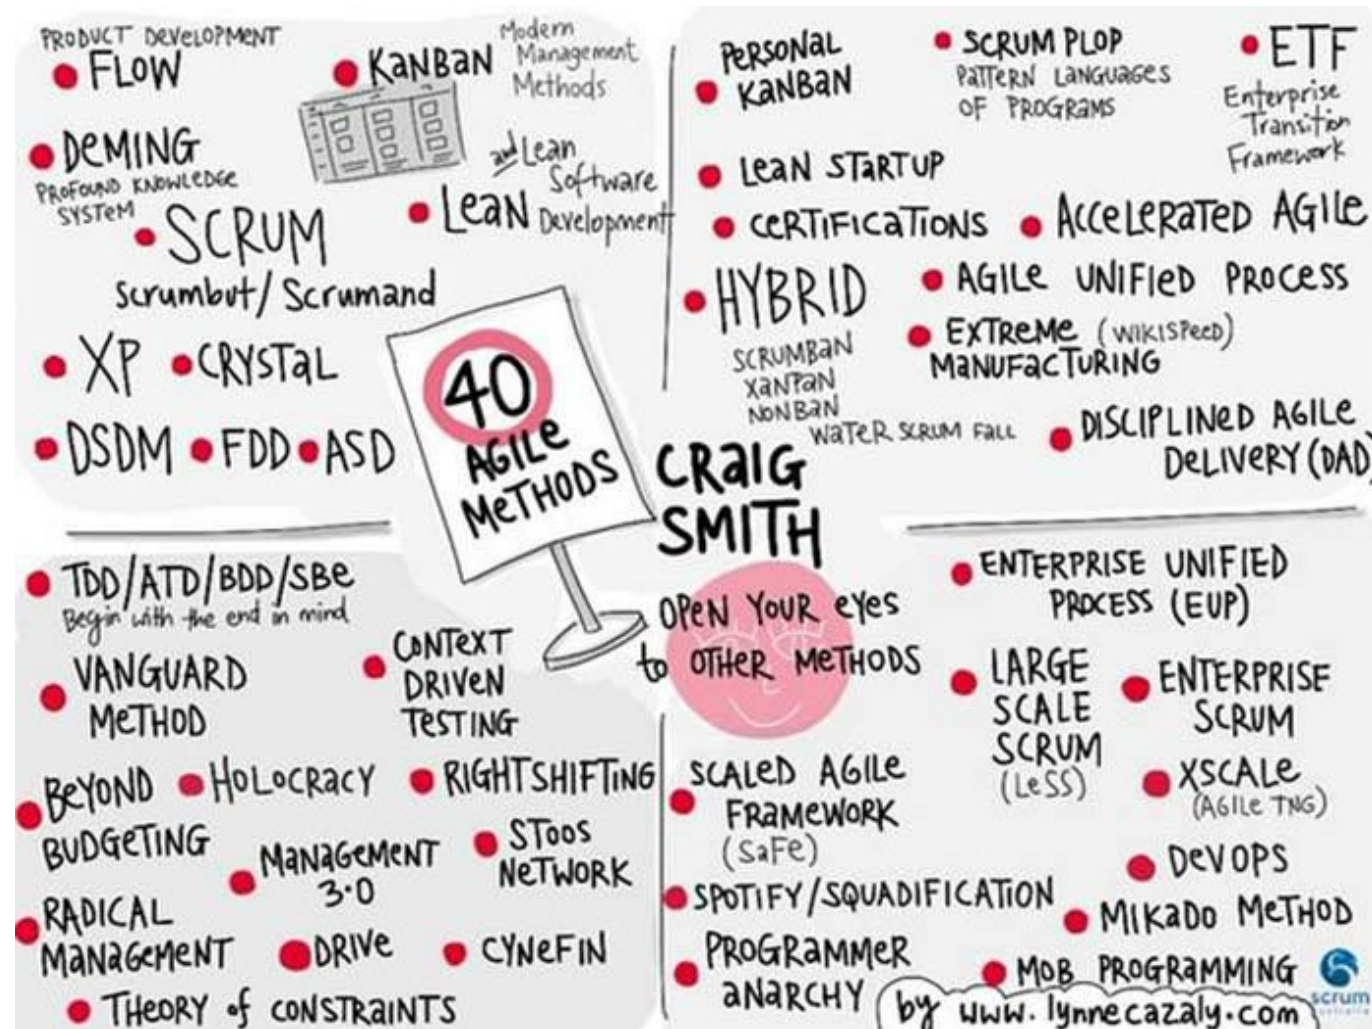 PRODUCT DEVELOPMENT
FLOW
KANBAN
Modern
Management
Methods
DEMING
PROFOUND KNOWLEDGE
SYSTEM
and Lean
Software
LEAN Development
SCRUM
Scrumbut/Scrumand
XP
CRYSTAL
DSDM
FDD
ASD
40
AGILE
METHODS
PERSONAL
KANBAN
SCRUM PLOP
PATTERN LANGUAGES
OF PROGRAMS
ETF
Enterprise
Transition
Framework
LEAN STARTUP
CERTIFICATIONS
ACCELERATED AGILE
HYBRID
SCRUMBAN
XANPAN
NONBAN
WATER SCRUM FALL
AGILE UNIFIED PROCESS
EXTREME (WIKISPEED)
MANUFACTURING
DISCIPLINED AGILE
DELIVERY (DAD)
CRAIG
SMITH
OPEN YOUR eyes
to OTHER METHODS
TDD/ATD/BDD/SBe
Begin with the end in mind
VANGUARD
METHOD
CONTEXT
DRIVEN
TESTING
BEYOND
BUDGETING
HOLOCRACY
RIGHTSHIFTING
MANAGEMENT
3.0
STOOS
NETWORK
RADICAL
MANAGEMENT
DRIVE
CYNEFIN
THEORY of CONSTRAINTS
ENTERPRISE UNIFIED
PROCESS (EUP)
LARGE
SCALE
SCRUM
(LeSS)
ENTERPRISE
SCRUM
SCALED AGILE
FRAMEWORK
(SaFe)
XSCALE
(AGILE TNG)
DEVOPS
SPOTIFY/SQUADIFICATION
MIKADO METHOD
PROGRAMMER
ANARCHY
MOB PROGRAMMING
by www.lynnecazaly.com
scrum